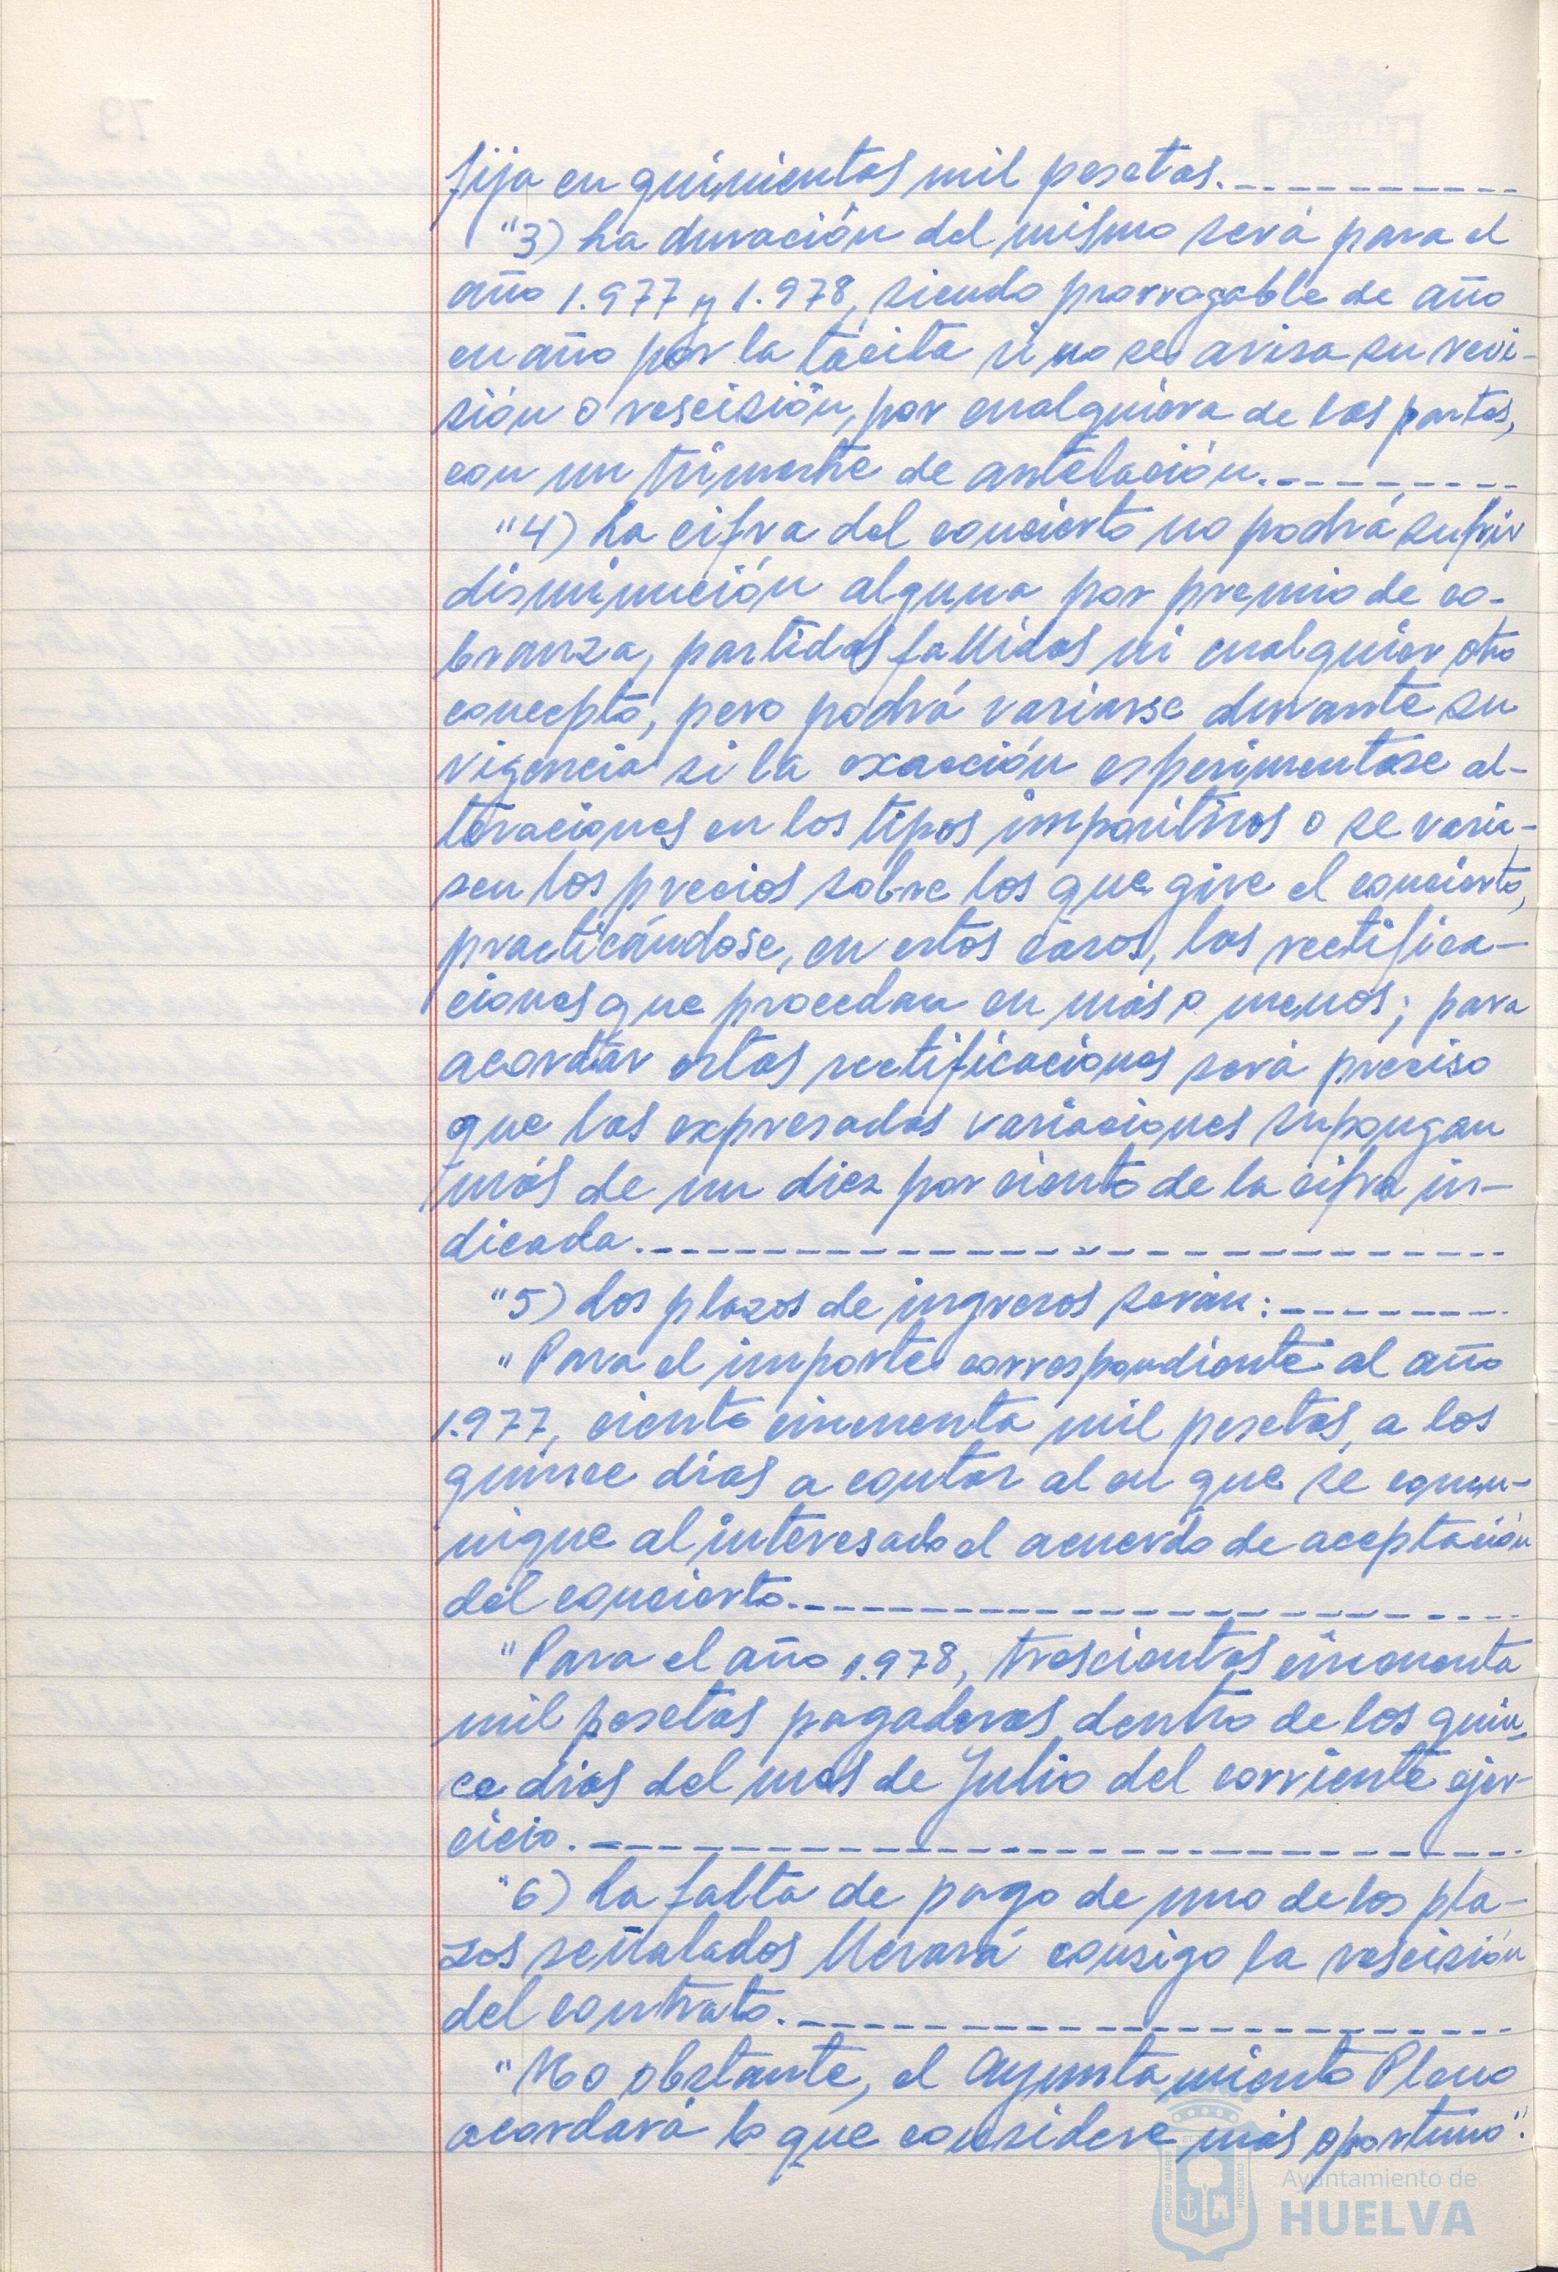 fija en quinientas mil pesetas.
"3) La duración del mismo será para el
año 1.977 y 1.978, siendo prorrogable de año
en año por la tácita si no se avisa su revi-
sión o rescisión, por cualquiera de las partes,
con un trimestre de antelación.
"4) La cifra del concierto no podrá sufrir
disminución alguna por premio de co-
branza, partidas fallidas ni cualquier otro
concepto, pero podrá variarse durante su
vigencia si la exacción esperimentase al-
teraciones en los tipos impositivos o se varia-
sen los precios sobre los que gire el concierto,
practicándose, en estos casos, las rectifica-
ciones que procedan en más o menos; para
acordar estas rectificaciones será preciso
que las expresadas variaciones supongan
más de un diez por ciento de la cifra in-
dicada.
"5) Los plazos de ingresos serán:
"Para el importe correspondiente al año
1.977, ciento cincuenta mil pesetas, a los
quince días a contar al en que se comu-
nique al interesado el acuerdo de aceptación
del concierto.
"Para el año 1.978, trescientas cincuenta
mil pesetas pagaderas dentro de los quin-
ce dias del mes de Julio del corriente ejer-
cicio.
"6) La falta de pago de uno de los pla-
zos señalados llevará consigo la rescisión
del contrato.
"No obstante, el Ayuntamiento Pleno
acordará lo que considere más oportuno".
Ayuntamiento de
HUELVA